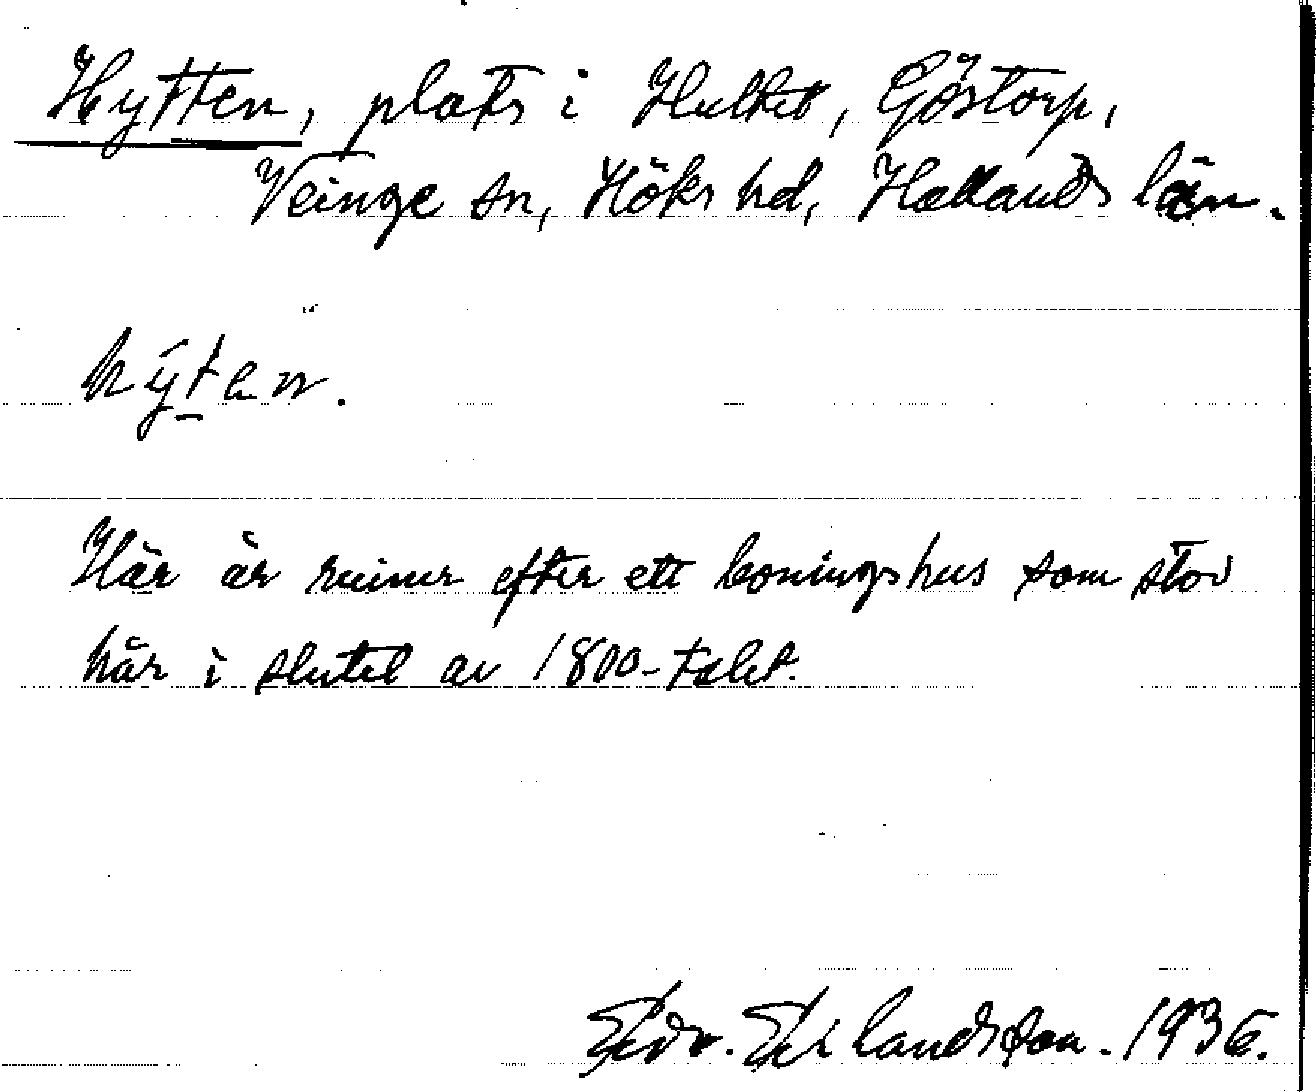 Hytten, plats i Hultet, Göstorp,
Veinge sn, Höks hd, Hallands län.
hýt en.
Här är ruiner efter ett boningshus som stod
här i slutet av 1800-talet.
Edv. Erlandsson. 1936.